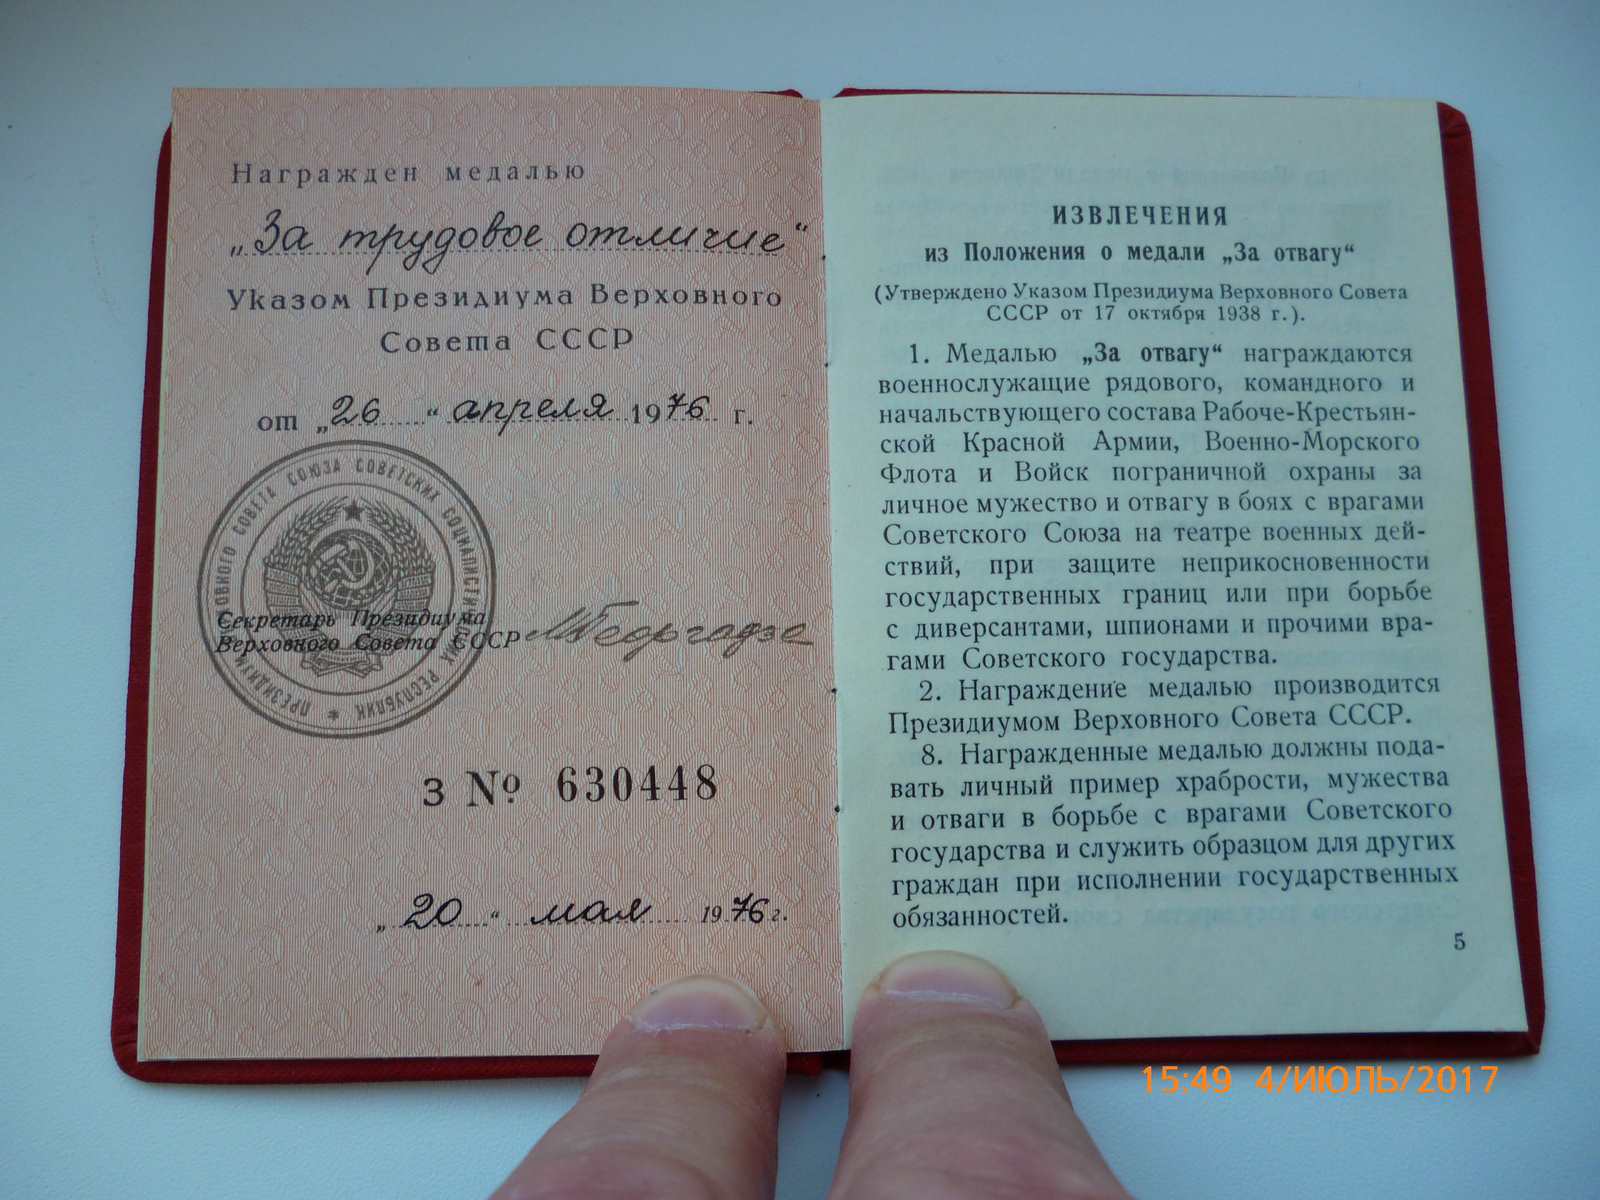 Награжден медалью
„За трудовое отличие“
Указом Президиума Верховного
Совета СССР
от „26“ апреля 1976 г.
ПРЕЗИДИУМ ВЕРХОВНОГО СОВЕТА СОЮЗА СОВЕТСКИХ СОЦИАЛИСТИЧЕСКИХ РЕСПУБЛИК
Секретарь Президиума
Верховного Совета СССР МГеоргадзе
З № 630448
„20“ мая 1976 г.
ИЗВЛЕЧЕНИЯ
из Положения о медали „За отвагу“
(Утверждено Указом Президиума Верховного Совета
СССР от 17 октября 1938 г.).
1. Медалью „За отвагу“ награждаются
военнослужащие рядового, командного и
начальствующего состава Рабоче-Крестьян-
ской Красной Армии, Военно-Морского
Флота и Войск пограничной охраны за
личное мужество и отвагу в боях с врагами
Советского Союза на театре военных дей-
ствий, при защите неприкосновенности
государственных границ или при борьбе
с диверсантами, шпионами и прочими вра-
гами Советского государства.
2. Награждение медалью производится
Президиумом Верховного Совета СССР.
8. Награжденные медалью должны пода-
вать личный пример храбрости, мужества
и отваги в борьбе с врагами Советского
государства и служить образцом для других
граждан при исполнении государственных
обязанностей.
5
15:49 4/ИЮЛЬ/2017